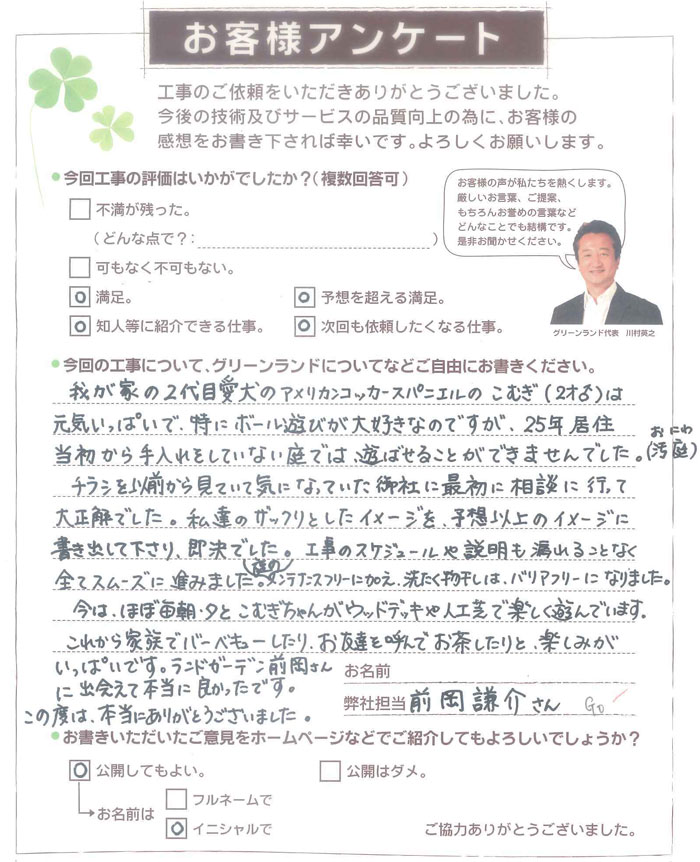 お客様アンケート
工事のご依頼をいただきありがとうございました。
今後の技術及びサービスの品質向上の為に、お客様の
感想をお書き下されば幸いです。よろしくお願いします。
今回工事の評価はいかがでしたか?(複数回答可)
お客様の声が私たちを熱くします。
厳しいお言葉、ご提案、
もちろんお誉めの言葉など
どんなことでも結構です。
是非お聞かせください。
グリーンランド代表 川村英之
不満が残った。
(どんな点で?: )
可もなく不可もない。
満足。 予想を超える満足。
知人等に紹介できる仕事。 次回も依頼したくなる仕事。
今回の工事について、グリーンランドについてなどご自由にお書きください。
我が家の2代目愛犬のアメリカンコッカースパニエルのこむぎ(2才♂)は
元気いっぱいで、特にボール遊びが大好きなのですが、25年居住
当初から手入れをしていない庭では遊ばせることができませんでした。(汚庭)
おにわ
チラシを以前から見ていて気になっていた御社に最初に相談に行って
大正解でした。私達のザックリとしたイメージを、予想以上のイメージに
書き出して下さり、即決でした。工事のスケジュールや説明も漏れることなく
全てスムーズに進みました。庭のメンテナンスフリーに加え、洗たく物干しは、バリアフリーになりました。
今は、ほぼ毎朝・夕とこむぎちゃんがウッドデッキや人工芝で楽しく遊んでいます。
これから家族でバーベキューしたり、お友達を呼んでお茶したりと、楽しみが
いっぱいです。ランドガーデン前岡さん
に出会えて本当に良かったです。
この度は、本当にありがとうございました。
お名前
弊社担当 前岡謙介さん
お書きいただいたご意見をホームページなどでご紹介してもよろしいでしょうか?
公開してもよい。 公開はダメ。
お名前は フルネームで
イニシャルで
ご協力ありがとうございました。